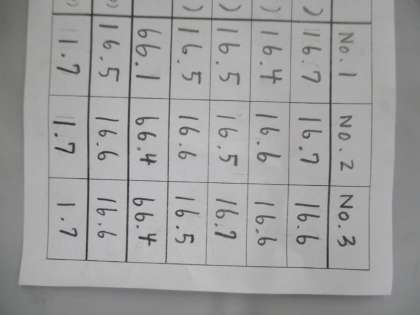 No.1 NO.2 NO.3
) 16.7 16.7 16.6
) 16.4 16.6 16.6
) 16.5 16.5 16.7
) 16.5 16.6 16.5
66.1 66.4 66.4
) 16.5 16.6 16.6
) 1.7 1.7 1.7